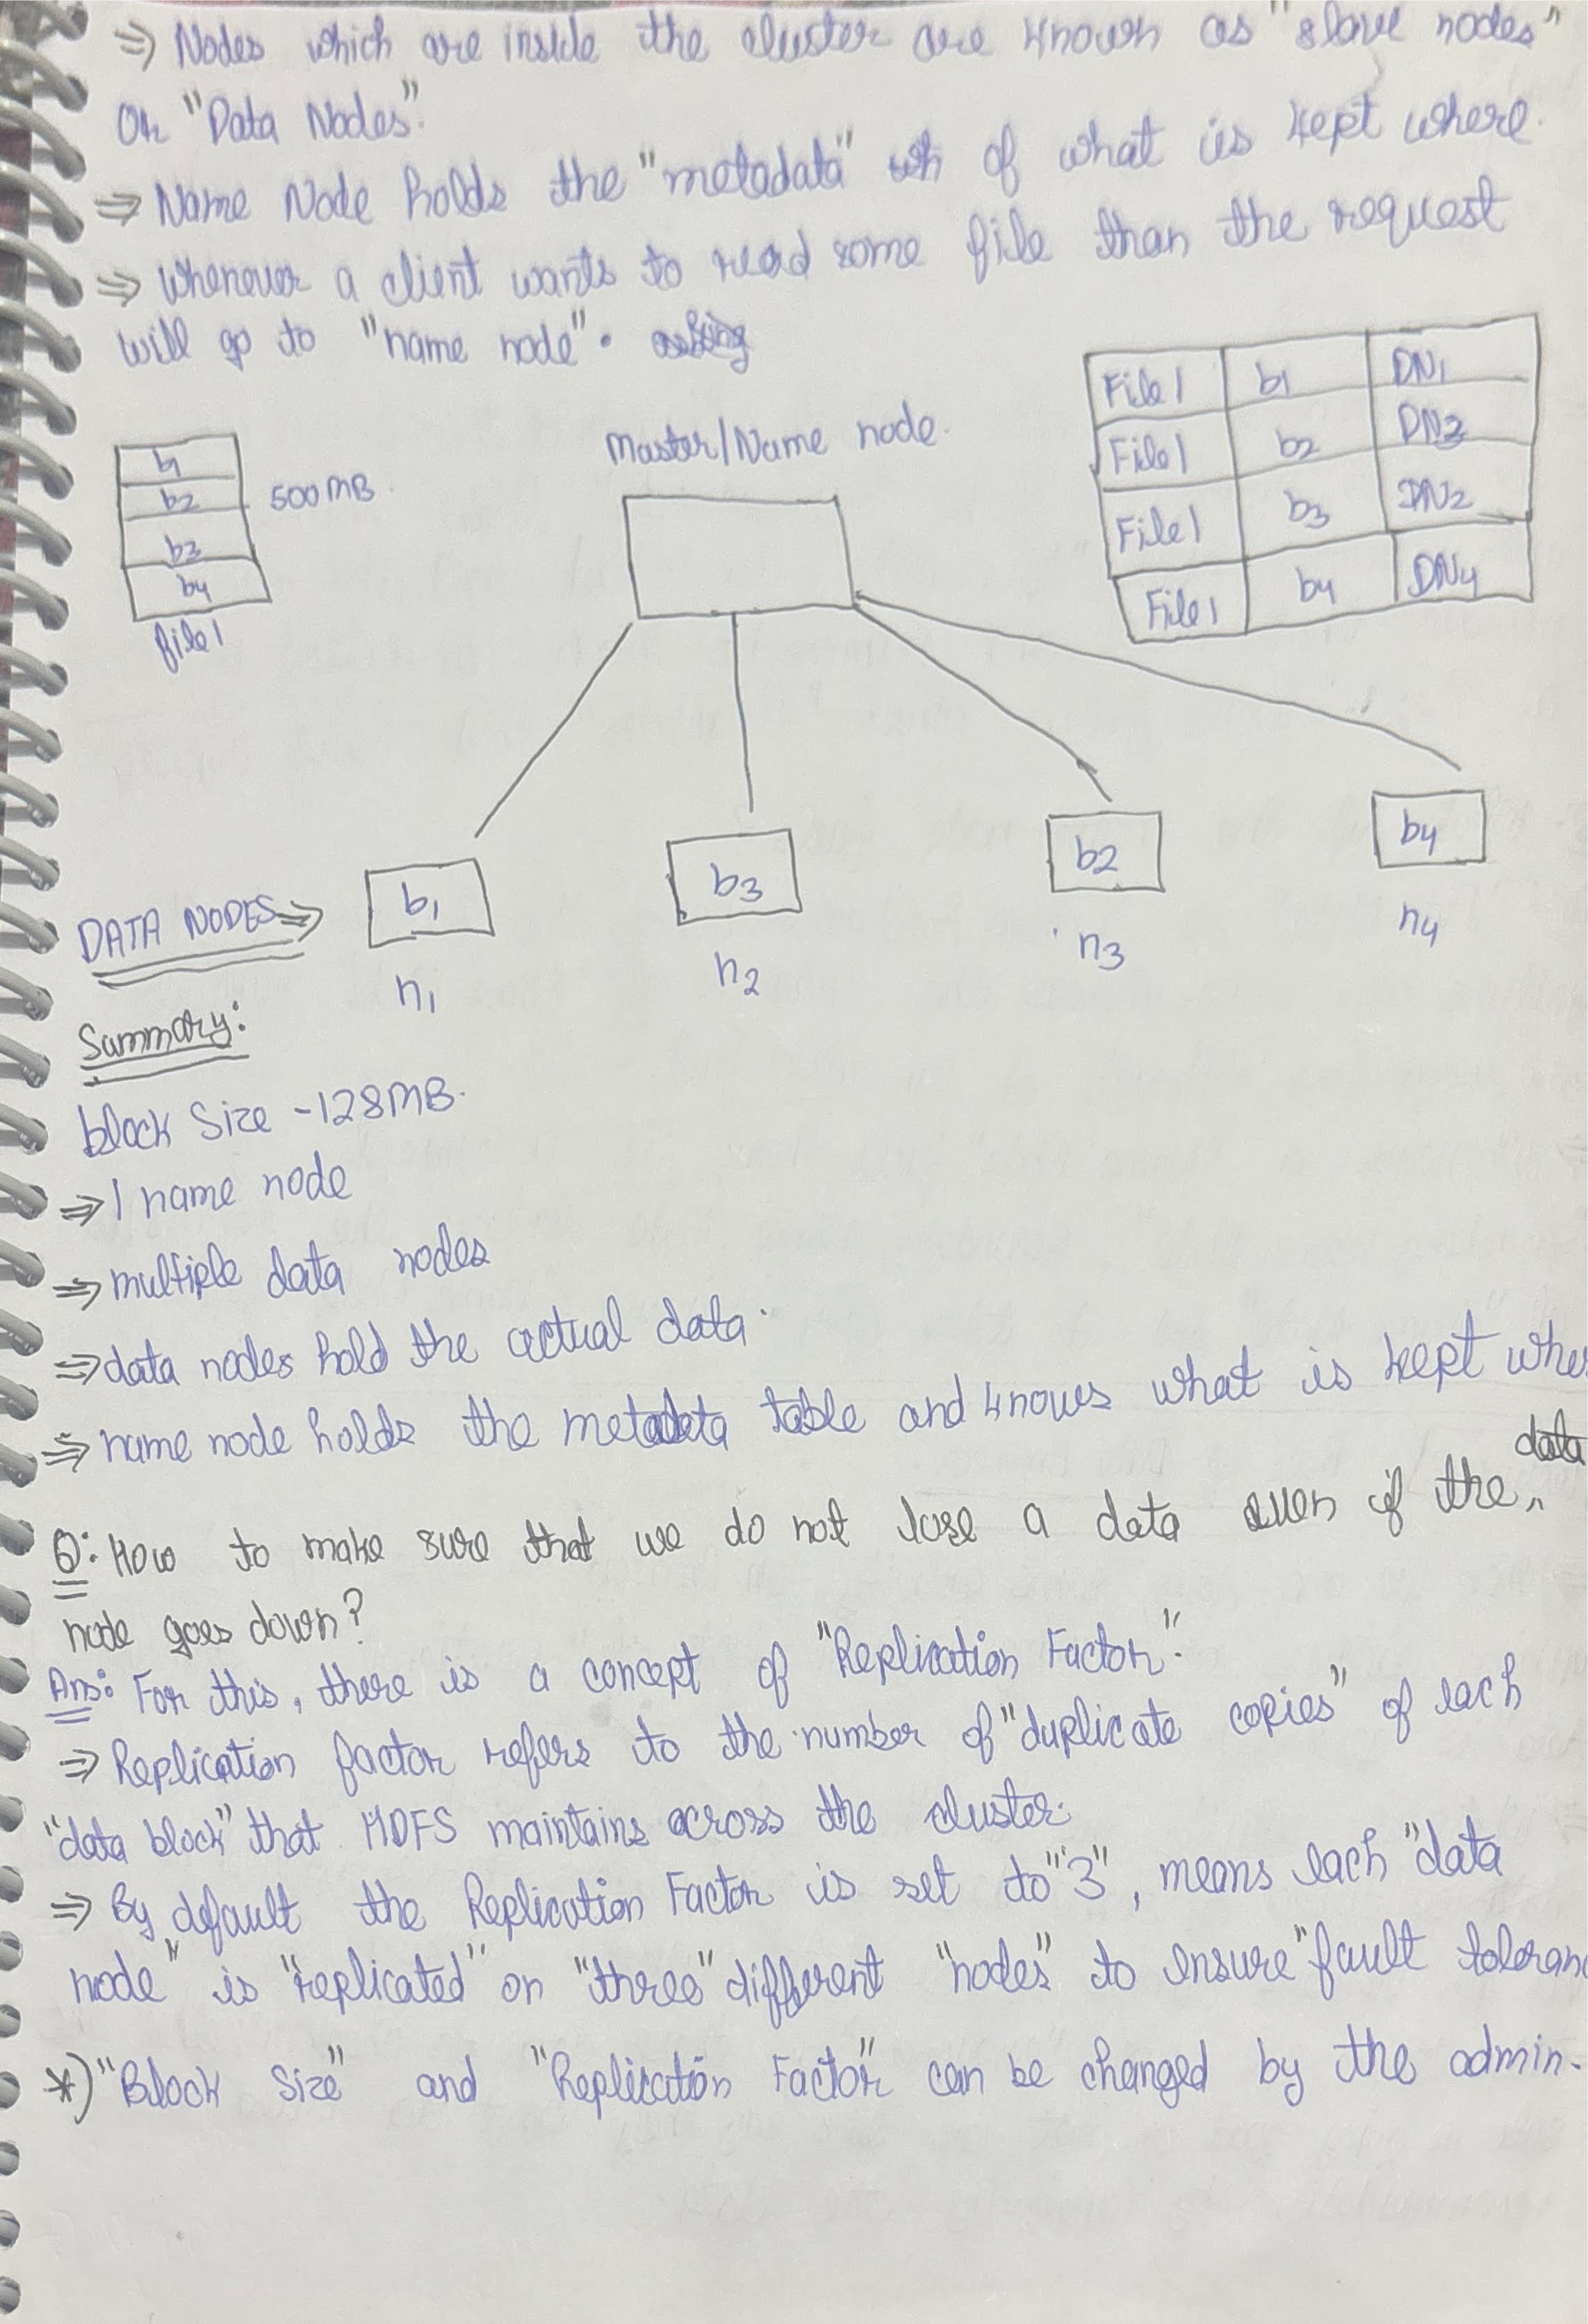 ⇒ Nodes which are inside the cluster are known as "slave nodes"
or "Data Nodes".
⇒ Name Node holds the "metadata" of what is kept where.
⇒ Whenever a client wants to read some file than the request
will go to "name node".
File1 b1 DN1
File1 b2 DN3
File1 b3 DN2
File1 b4 DN4
Master/Name node.
b1
b2
b3
b4
500MB.
file1
DATA NODES ⇒
b1
b3
b2
b4
n1
n2
n3
n4
Summary:
block Size - 128MB.
⇒ 1 name node
⇒ multiple data nodes
⇒ data nodes hold the actual data.
⇒ name node holds the metadata table and knows what is kept whe
Q: How to make sure that we do not lose a data even if the data
node goes down?
Ans: For this, there is a concept of "Replication Factor".
⇒ Replication factor refers to the number of "duplicate copies" of each
"data block" that HDFS maintains across the cluster.
⇒ By default the Replication Factor is set to "3", means each "data
node" is "replicated" on "three" different "nodes" to ensure "fault toleran
*) "Block Size" and "Replication Factor" can be changed by the admin.